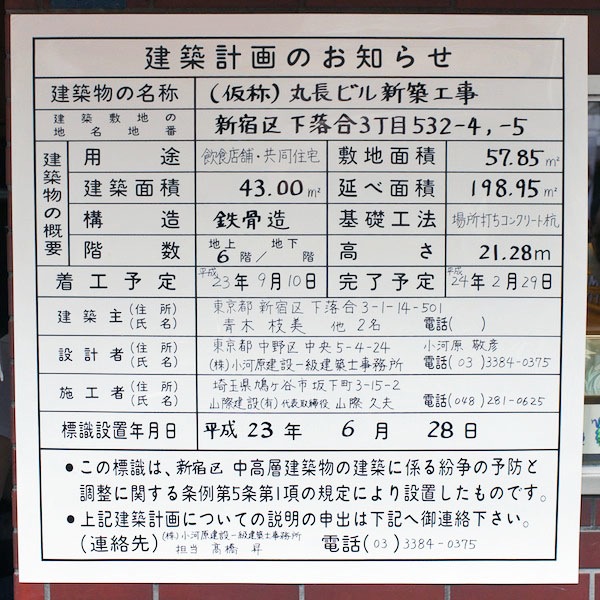 建築計画のお知らせ
建築物の名称 (仮称) 丸長ビル新築工事
建築敷地の地名地番 新宿区下落合3丁目532-4,-5
建築物の概要
用途 飲食店舗・共同住宅 敷地面積 57.85㎡
建築面積 43.00㎡ 延べ面積 198.95㎡
構造 鉄骨造 基礎工法 場所打ちコンクリート杭
階数 地上6階/地下 階 高さ 21.28m
着工予定 平成23年9月10日 完了予定 平成24年2月29日
建築主(住所) 東京都新宿区下落合3-1-14-501
(氏名) 青木枝美 他2名 電話( )
設計者(住所) 東京都中野区中央5-4-24 小河原 敬彦
(氏名) (株)小河原建設一級建築士事務所 電話(03)3384-0375
施工者(住所) 埼玉県鳩ヶ谷市坂下町3-15-2
(氏名) 山際建設(有) 代表取締役 山際久夫 電話(048)281-0625
標識設置年月日 平成23年 6月 28日
●この標識は、新宿区 中高層建築物の建築に係る紛争の予防と
調整に関する条例第5条第1項の規定により設置したものです。
●上記建築計画についての説明の申出は下記へ御連絡下さい。
(連絡先) (株)小河原建設一級建築士事務所
担当 髙橋 昇 電話(03)3384-0375